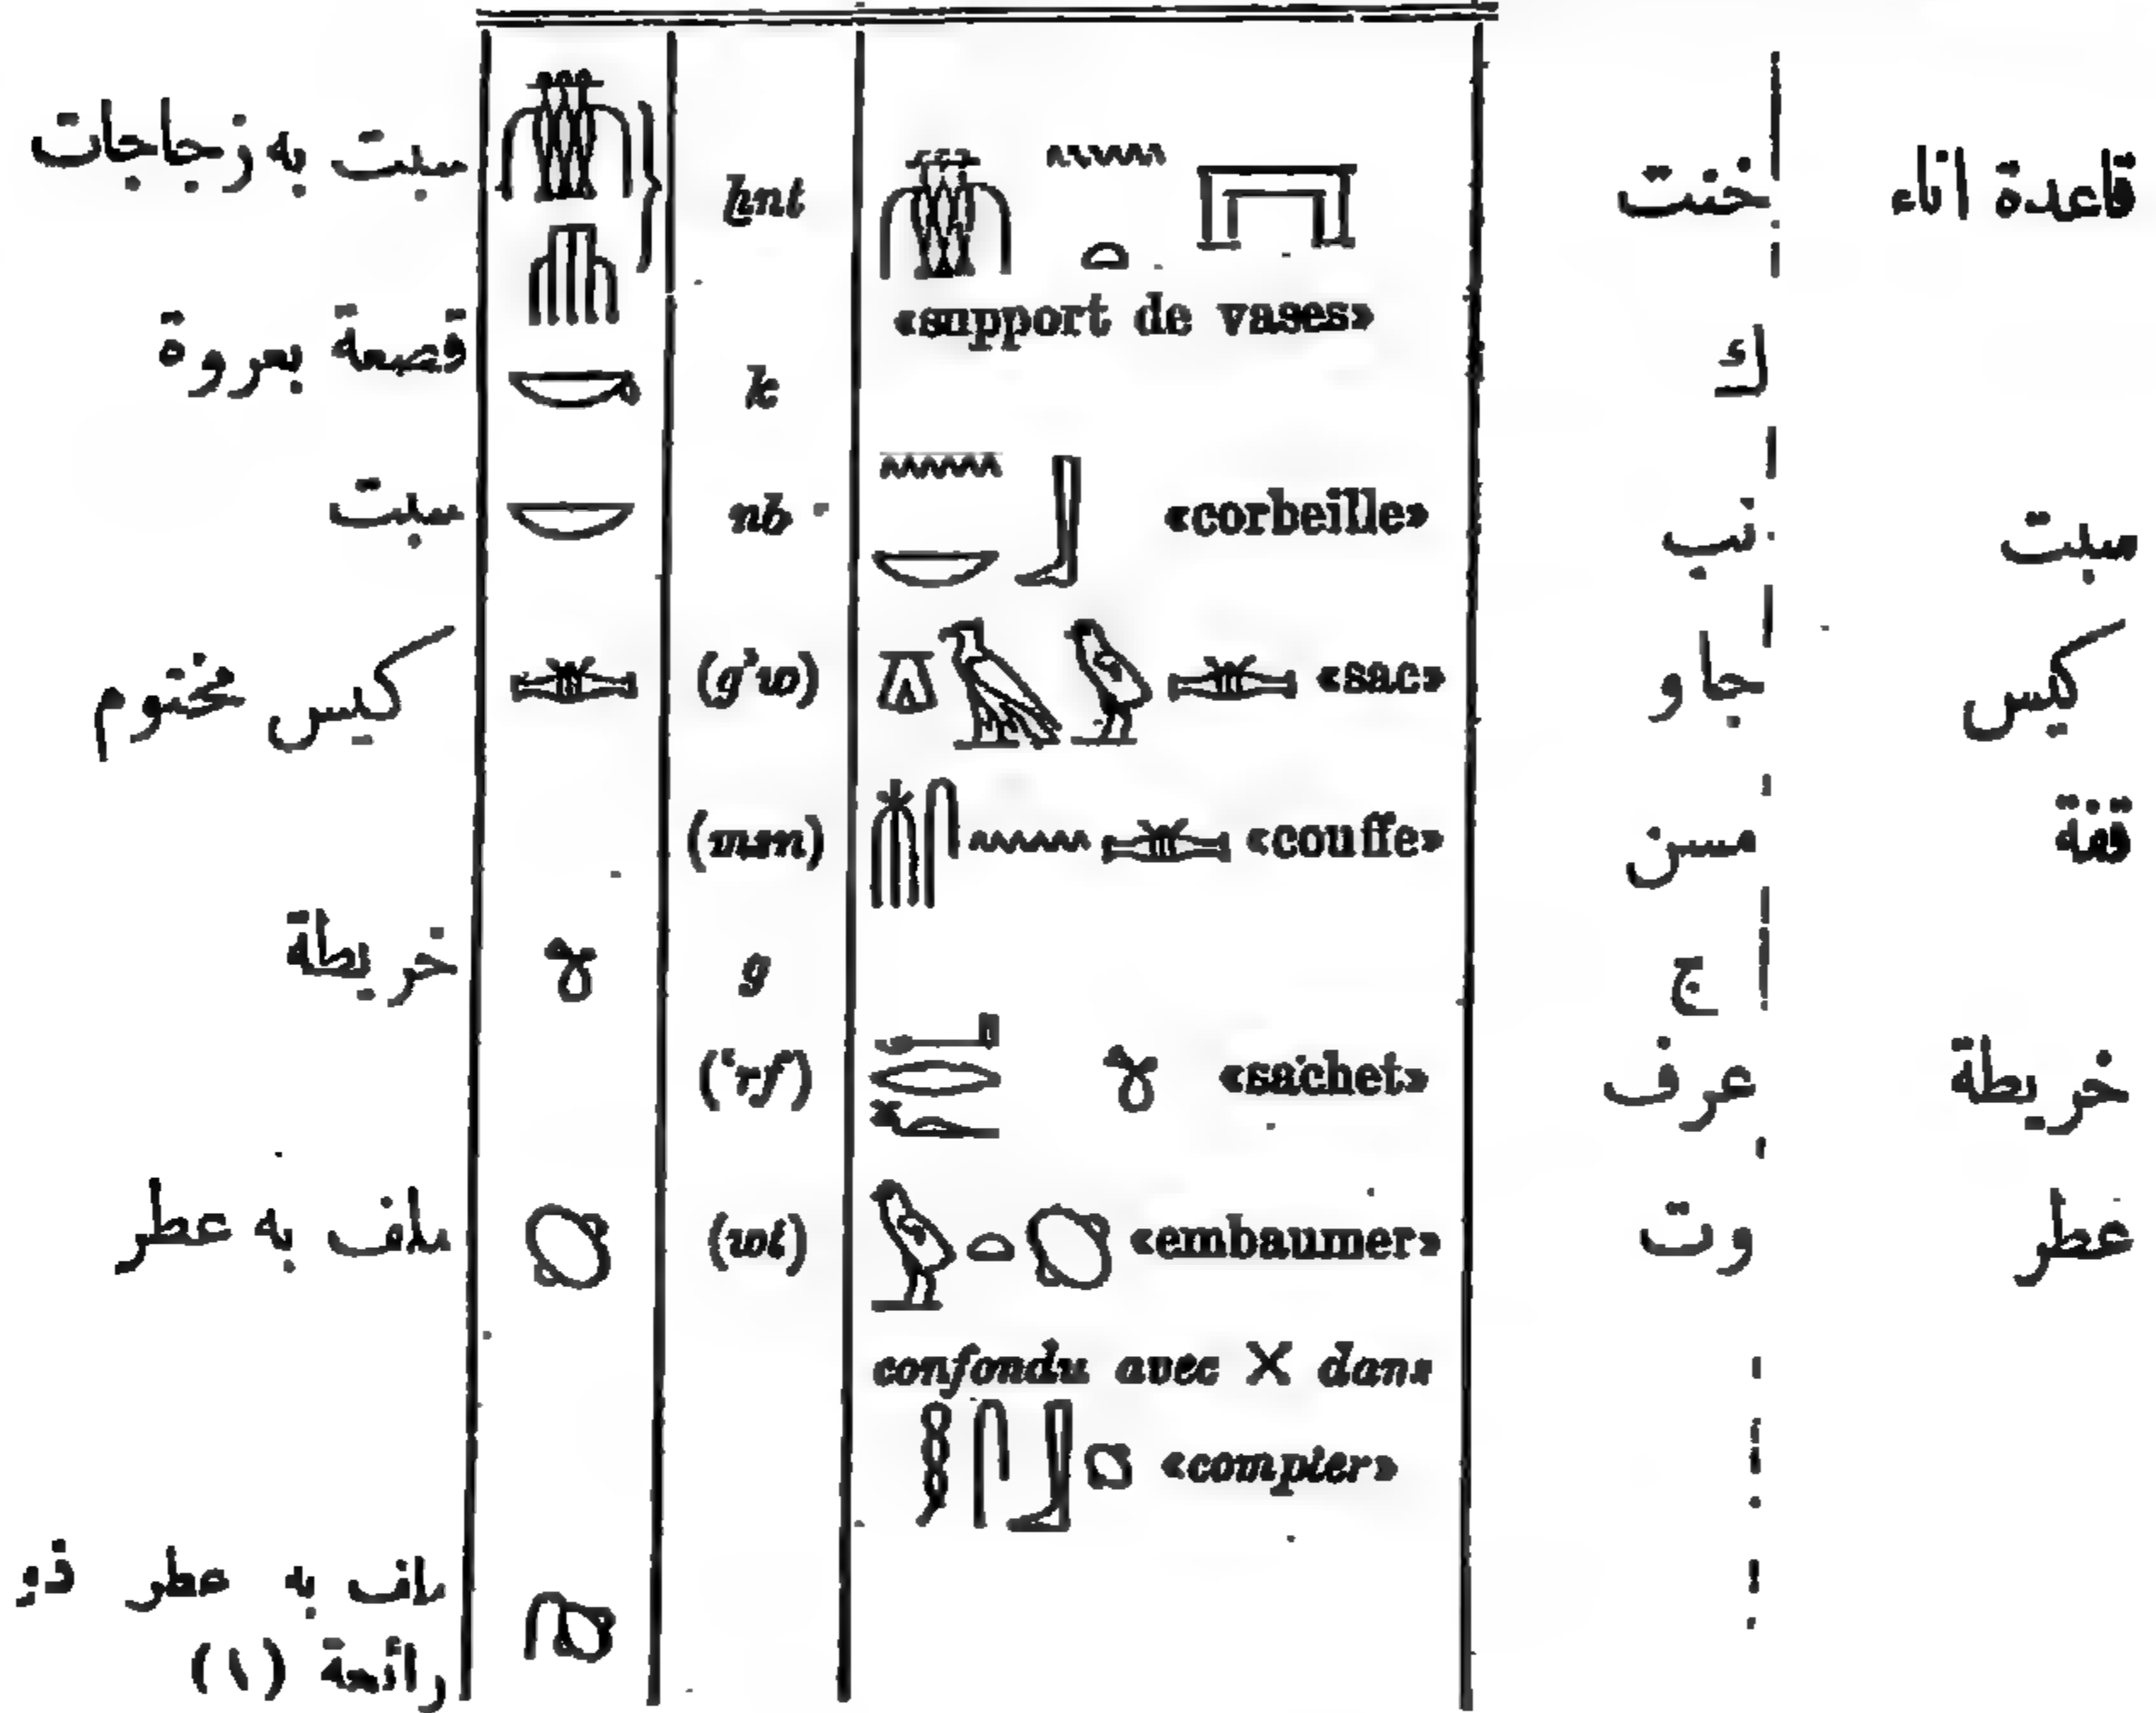 سبت به زجاجات ḫnt خنت قاعدة اناء
«support de vases»
قصعة بعروة k ك
سبت nb «corbeille» نب سبت
كيس مختوم (gʾw) «sac» جاو كيس
(msn) «couffe» مسن قفة
خريطة g ج
(ʿrf) «sachet» عرف خريطة
ملف به عطر (wt) «embaumer» وت عطر
confondu avec X dans
«compter»
ملف به عطر ذو
رائحة (١)